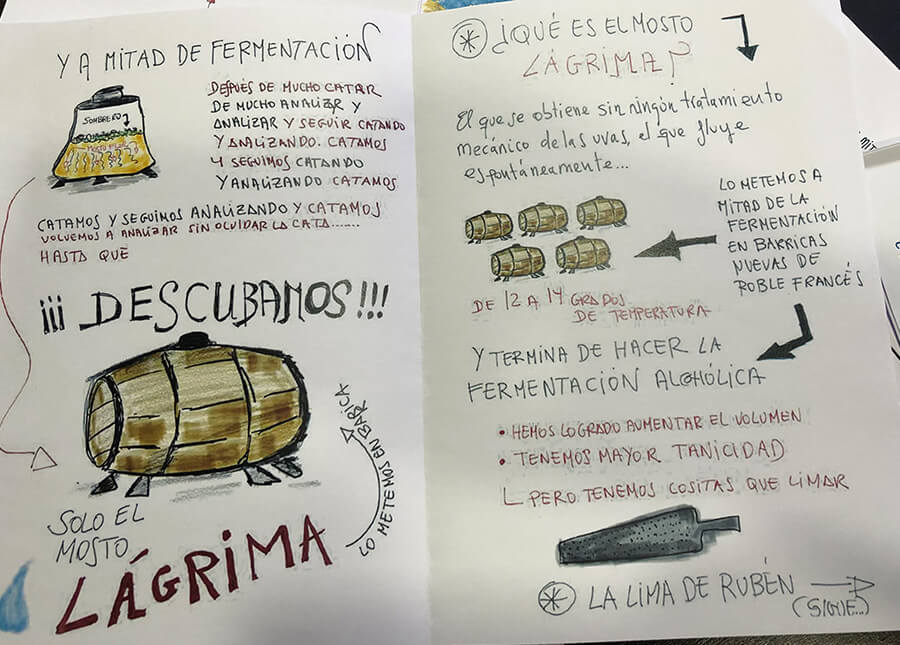 Y A MITAD DE FERMENTACIÓN
SOMBRERO
DESPUÉS DE MUCHO CATAR
DE MUCHO ANALIZAR Y
ANALIZAR Y SEGUIR CATANDO
Y ANALIZANDO. CATAMOS
Y SEGUIMOS CATANDO
Y ANALIZANDO CATAMOS
CATAMOS Y SEGUIMOS ANALIZANDO Y CATAMOS
VOLVEMOS A ANALIZAR SIN OLVIDAR LA CATA.......
HASTA QUE
¡¡¡ DESCUBAMOS!!!
LO METEMOS EN BARRICA
SOLO EL
MOSTO
LÁGRIMA
* ¿QUÉ ES EL MOSTO
LÁGRIMA?
El que se obtiene sin ningún tratamiento
mecánico de las uvas, el que fluye
espontáneamente...
LO METEMOS A
MITAD DE LA
FERMENTACIÓN
EN BARRICAS
NUEVAS DE
ROBLE FRANCÉS
DE 12 A 14 GRADOS
DE TEMPERATURA
Y TERMINA DE HACER LA
FERMENTACIÓN ALCHÓLICA
• HEMOS LOGRADO AUMENTAR EL VOLUMEN
• TENEMOS MAYOR TANICIDAD
PERO TENEMOS COSITAS QUE LIMAR
* LA LIMA DE RUBÉN
(SIGUE...)